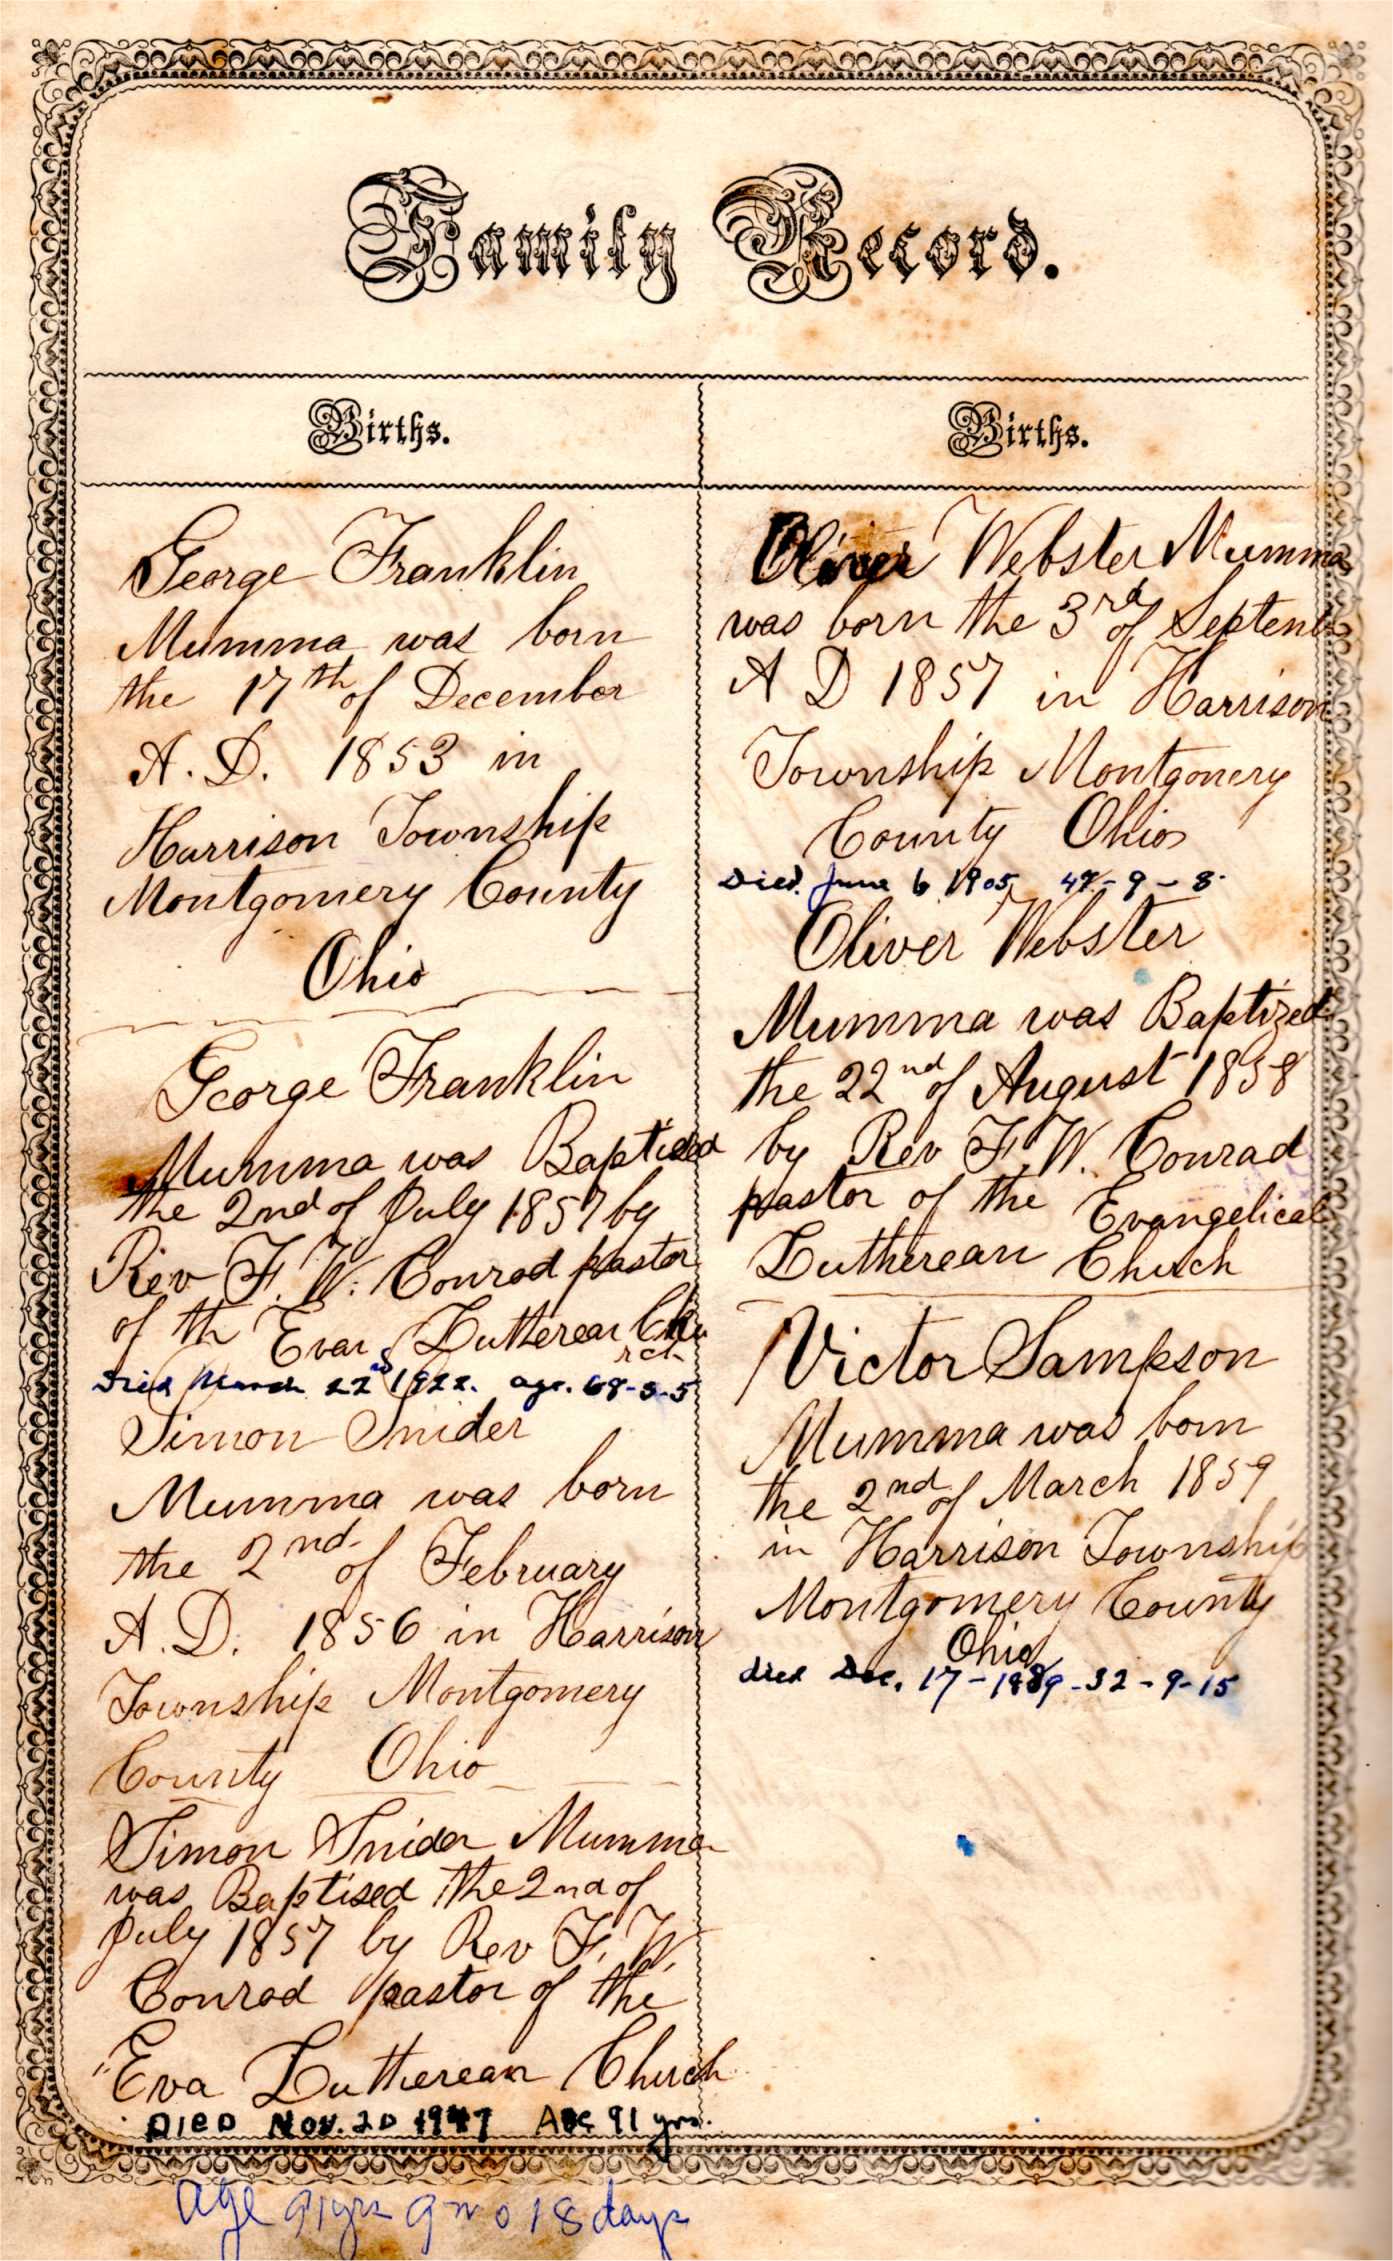 Family Record.
Births.
George Franklin
Mumma was born
the 17th of December
A. D. 1853 in
Harrison Township
Montgomery County
Ohio
George Franklin
Mumma was Baptised
the 2nd of July 1857 by
Rev F. W. Conrad pastor
of th Evan Lutherean Chu
rch
Died March 22nd 1922. age. 68-3-5
Simon Snider
Mumma was born
the 2nd of February
A. D. 1856 in Harrison
Township Montgomery
County Ohio
Simon Snider Mumma
was Baptised the 2nd of
July 1857 by Rev F. W.
Conrad pastor of the
Eva Lutherean Church
DIED NOV. 20 1947 AGE 91 yrs.
age 91 yrs 9 mo 18 days
Births.
Oliver Webster Mumma
was born the 3rd of Septem
A D 1857 in Harrison
Township Montgomery
County Ohio
Died. June 6 1905, 47-9-8.
Oliver Webster
Mumma was Baptized
the 22nd of August 1858
by Rev F. W. Conrad
pastor of the Evangelical
Lutherean Church
Victor Sampson
Mumma was born
the 2nd of March 1859
in Harrison Township
Montgomery County
Ohio
died Dec. 17-1889-32-9-15